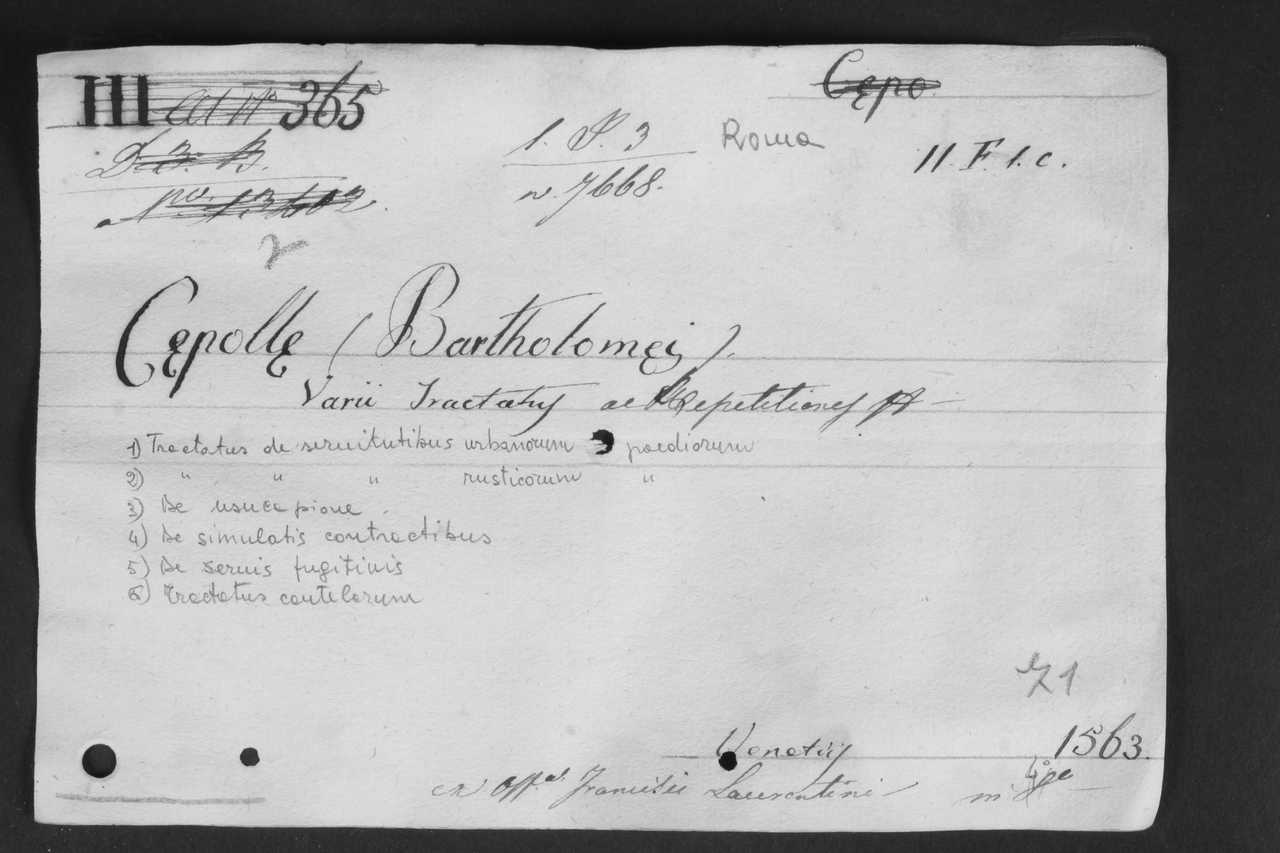 III 365 Cępo
D. 3. B. 1. P. 3 Roma 11 F. 1. c.
No. 13602 n. 7668.
2
Cępollę (Bartholomęi).
Varii Tractatus ac Repetitiones
1) Tractatus de seruitutibus urbanorum praediorum
2) " " " rusticorum "
3) De usucapione.
4) De simulatis contractibus
5) De seruis fugitiuis
6) Tractatus cautelarum
Z1
Venetiis 1563.
ex Offa. Francisci Laurentini in 4o